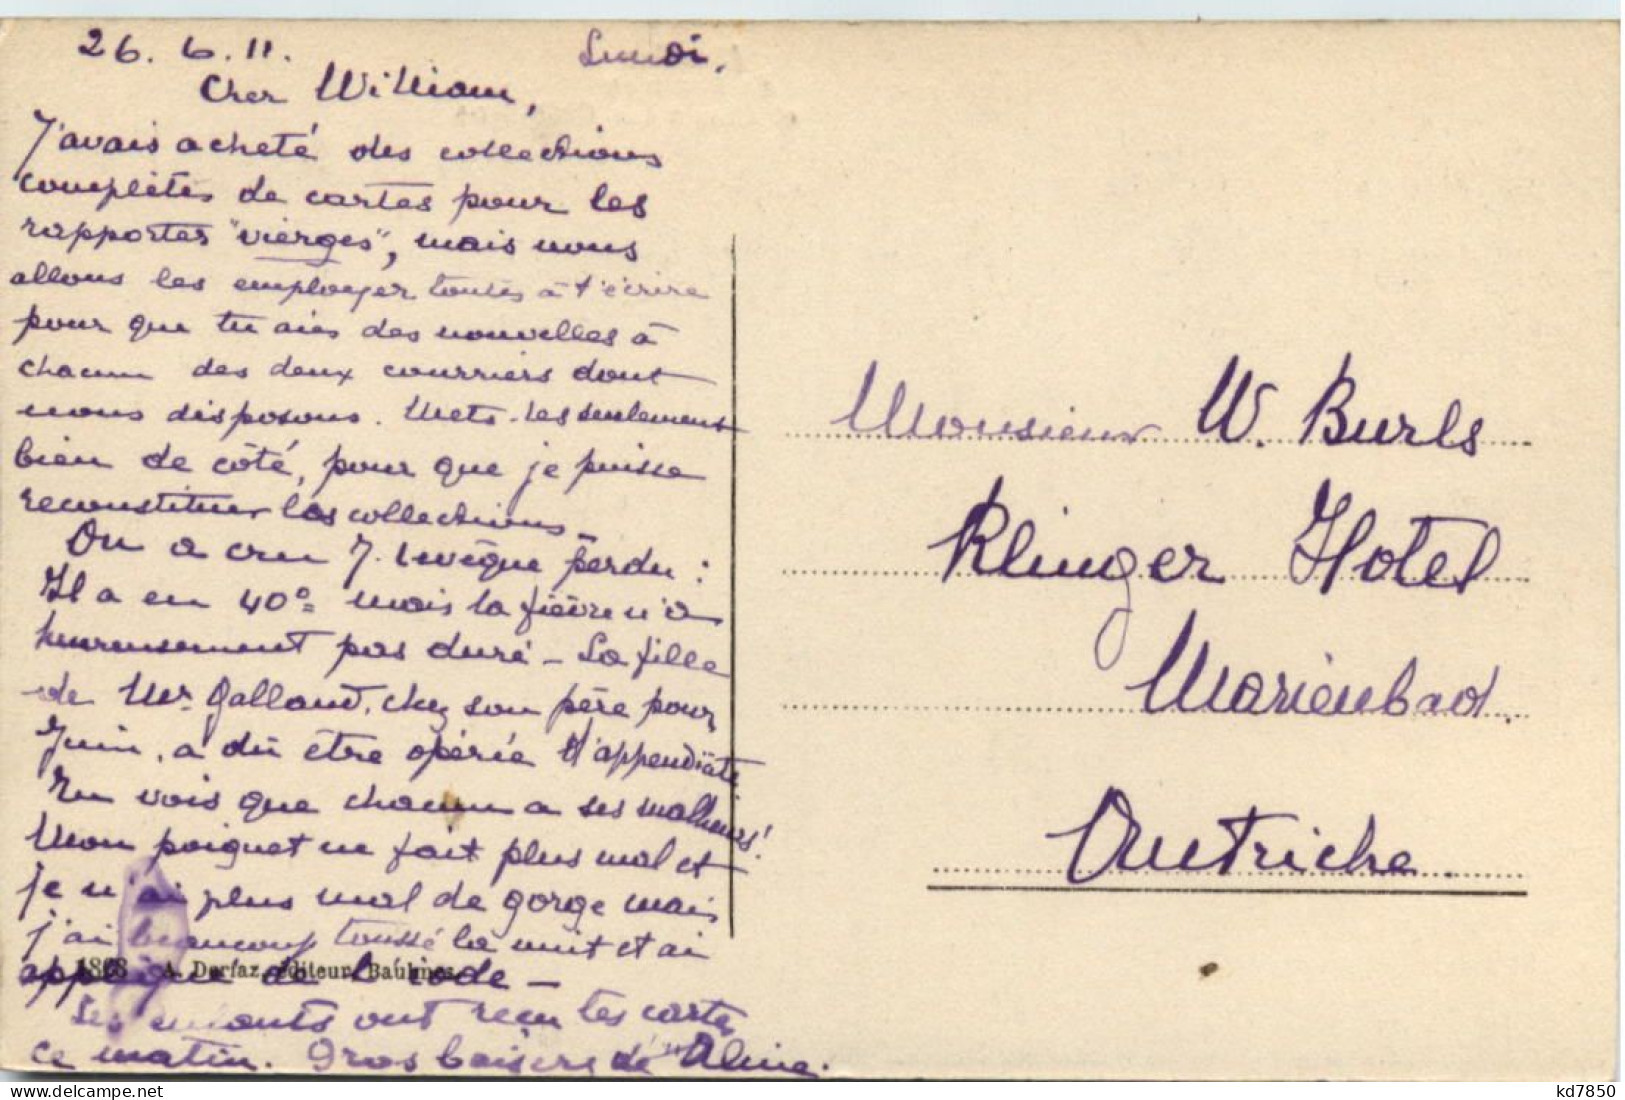 26. 6. 11. Lundi.
Cher William,
J'avais acheté des collections
complètes de cartes pour les
rapporter "vierges", mais nous
allons les employer toutes à t'écrire
pour que tu aies des nouvelles à
chacun des deux courriers dont
nous disposons. Mets-les seulement
bien de côté, pour que je puisse
reconstituer les collections -
On a cru J. perdu :
Il a eu 40° = mais la fièvre n'a
heureusement pas duré - La fille
de Mr. Galland, chez son père pour
Juin, a dû être opérée d'appendicite
Tu vois que chacun a ses malheurs!
Mon poignet ne fait plus mal et
je n'ai plus mal de gorge mais
j'ai beaucoup toussé la nuit et ai
appliqué de l'iode -
Les enfants ont reçu tes cartes
ce matin. Gros baisers de Aline.
1868 A. Deriaz, éditeur, Baulmes.
Monsieur W. Burls
Klinger Hotel
Marienbad.
Autriche
kd7850